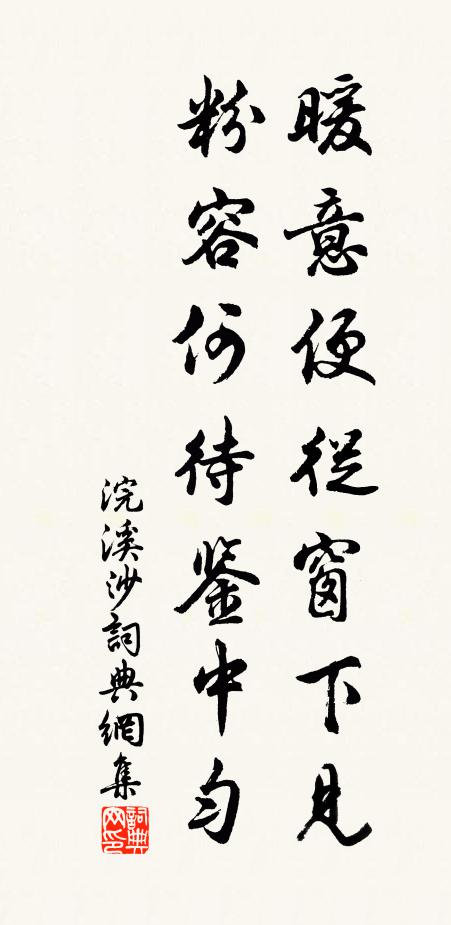 暖意便從窗下見
粉容何待鑒中勻
浣溪沙詞典網集
詞典
网印